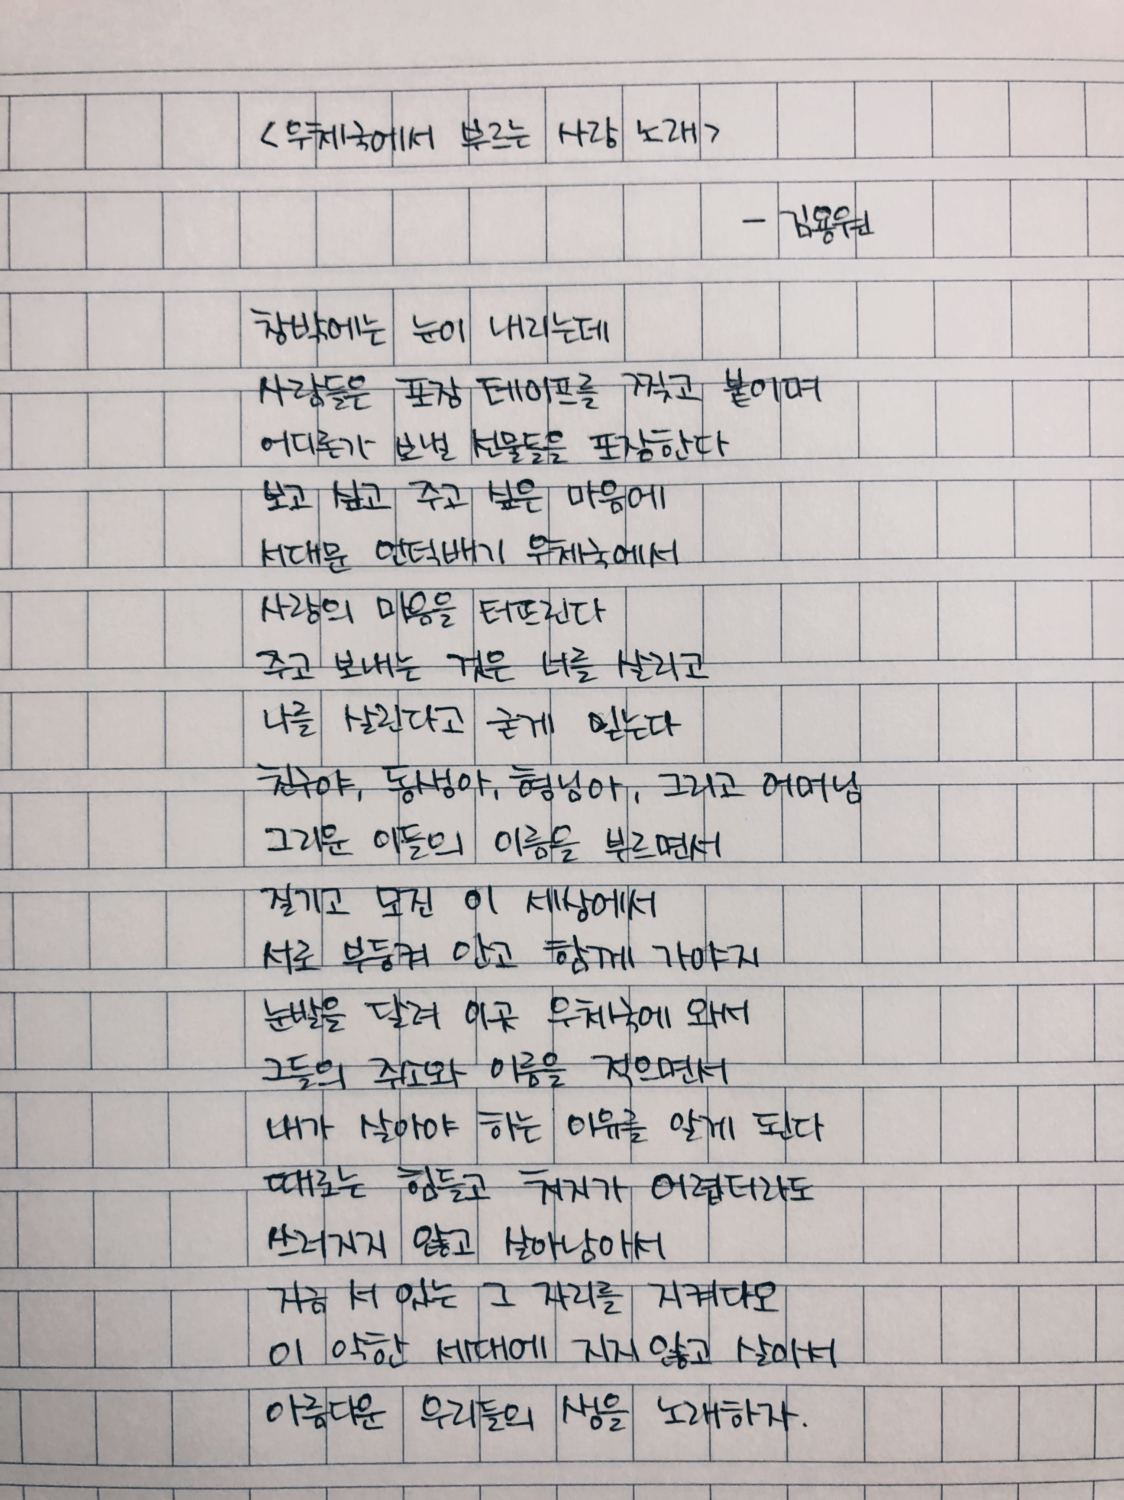 <우체국에서 부르는 사랑 노래>
- 김용원
창밖에는 눈이 내리는데
사람들은 포장 테이프를 찍고 붙이며
어디론가 보낼 선물들을 포장한다
보고 싶고 주고 싶은 마음에
서대문 언덕배기 우체국에서
사랑의 마음을 터뜨린다
주고 보내는 것은 너를 살리고
나를 살린다고 굳게 믿는다
친구야, 동생아, 형님아, 그리고 어머님
그리운 이들의 이름을 부르면서
질기고 모진 이 세상에서
서로 부둥켜 안고 함께 가야지
눈발을 달려 이곳 우체국에 와서
그들의 주소와 이름을 적으면서
내가 살아야 하는 이유를 알게 된다
때로는 힘들고 처지가 어렵더라도
쓰러지지 않고 살아남아서
지금 서 있는 그 자리를 지켜다오
이 악한 세대에 지지 않고 살아서
아름다운 우리들의 생을 노래하자.